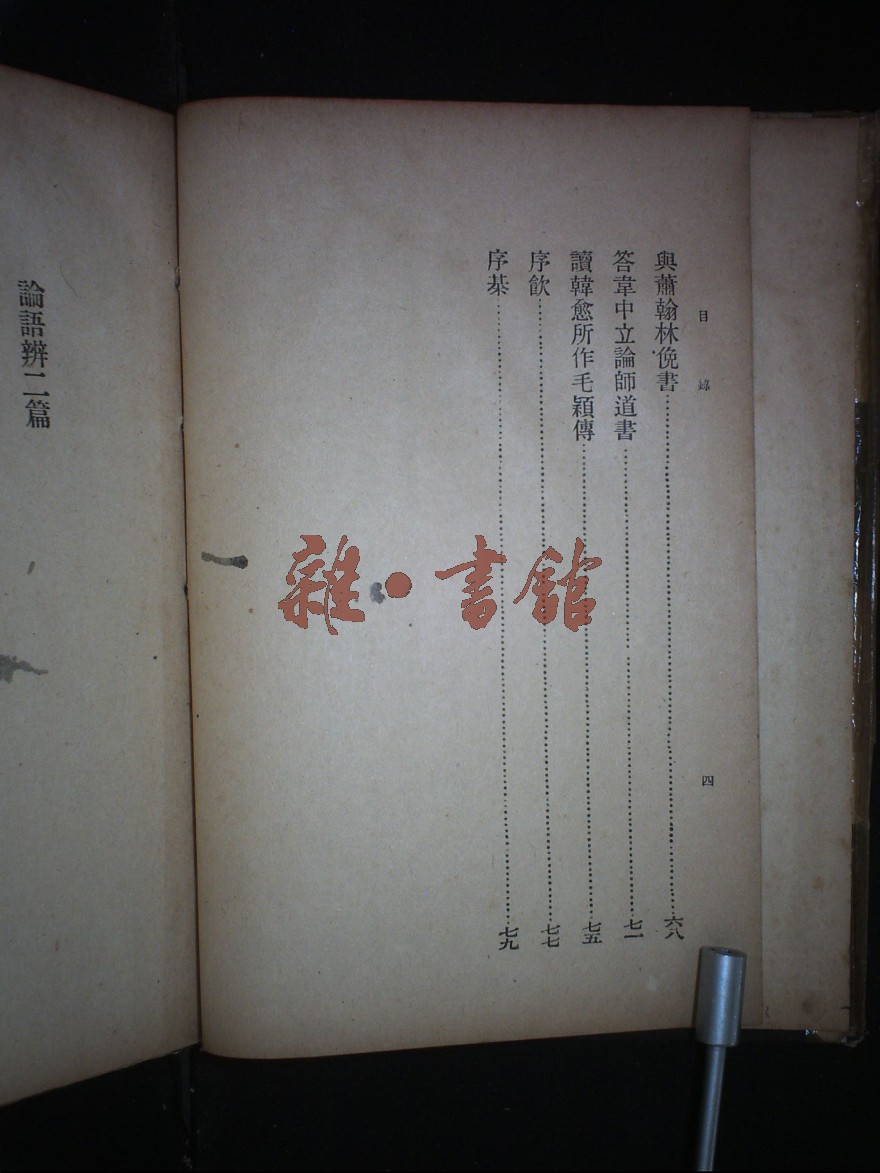 目錄
四
與蕭翰林俛書……六八
答韋中立論師道書……七一
讀韓愈所作毛穎傳……七五
序飲……七七
序棊……七九
論語辨二篇
雜·書館